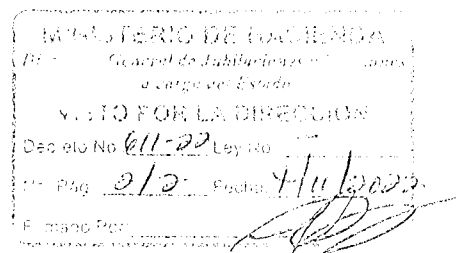 MINISTERIO DE HACIENDA
General de Jubilaciones
a cargo del Estado
VISTO POR LA DIRECCION
Decreto No 611-22 Ley No
Pag. 2/2 Fecha 4/11/2022
Firmado Por